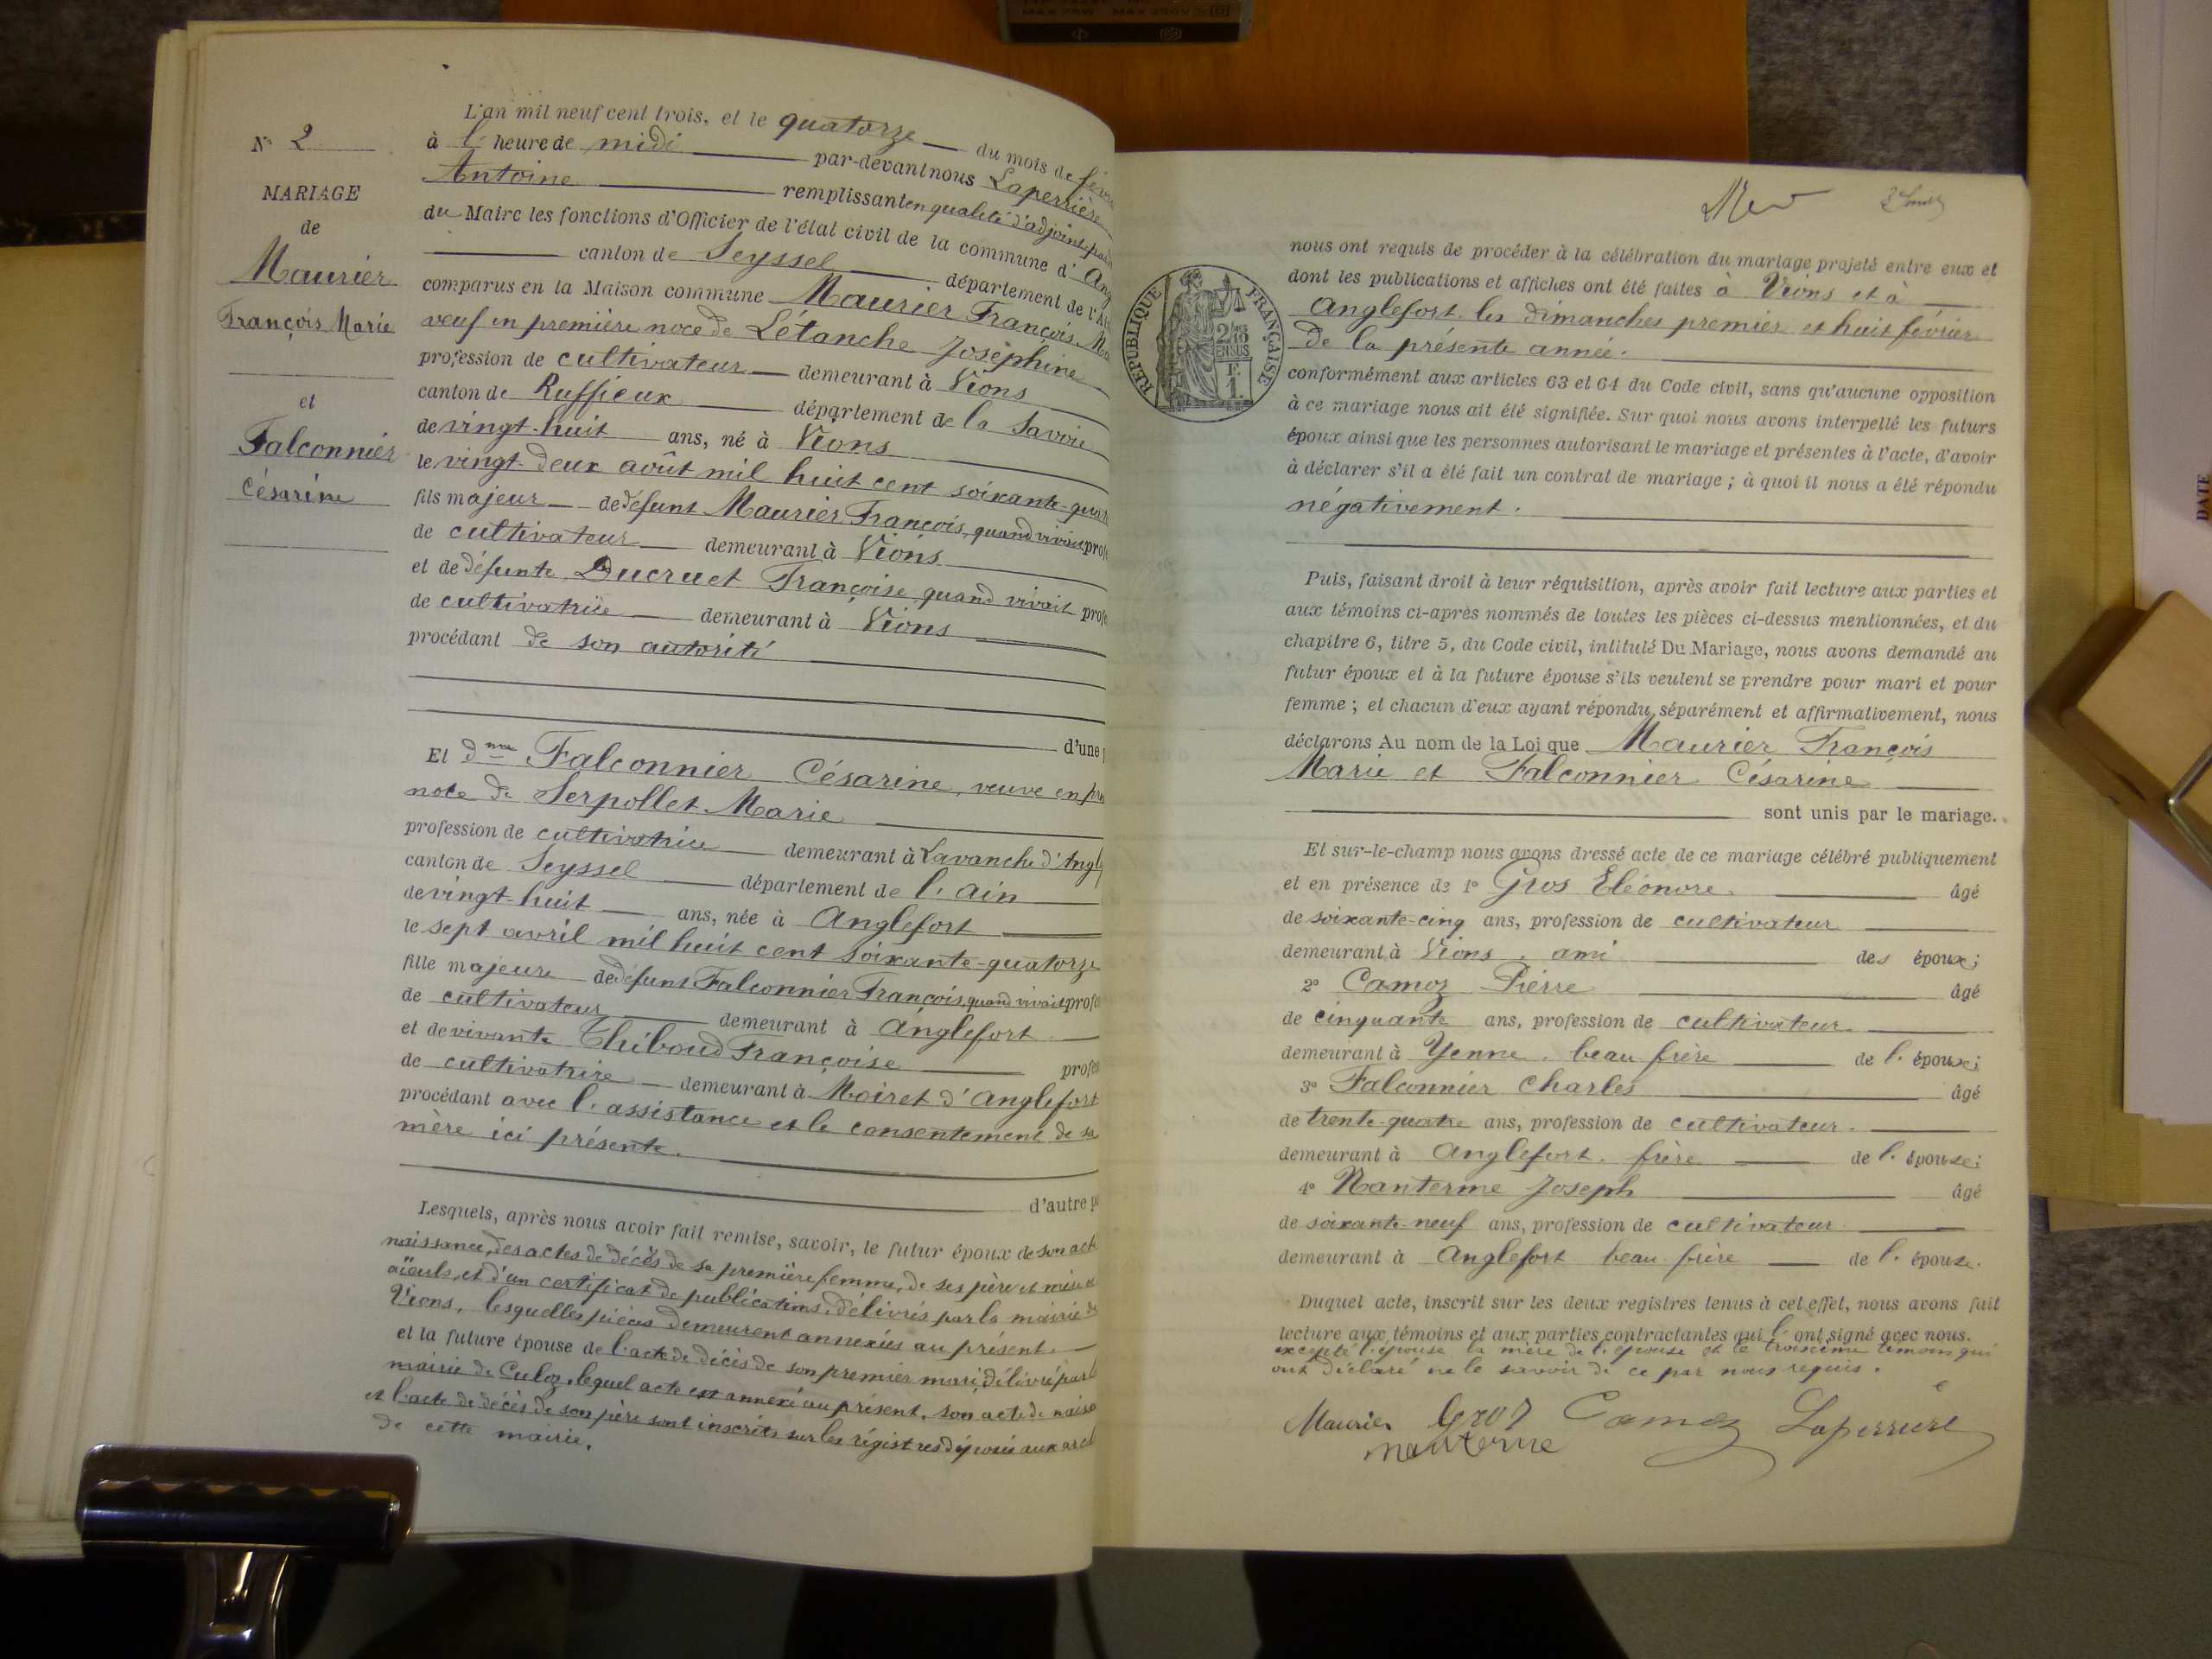 MAX 75W MAX 250V
N° 2
MARIAGE
de
Maurier
François Marie
et
Falconnier
Césarine
L'an mil neuf cent trois, et le quatorze du mois de févr
à l' heure de midi par-devant nous Laperrière
Antoine remplissant en qualité d'adjoint
du Maire les fonctions d'Officier de l'état civil de la commune d' Ang
canton de Seyssel département de l'A
comparus en la Maison commune Maurier François Ma
veuf en première noce de Létanche Joséphine
profession de cultivateur demeurant à Vions
canton de Ruffieux département de la Savoie
de vingt-huit ans, né à Vions
le vingt-deux août mil huit cent soixante-quat
fils majeur de défunt Maurier François, quand vivait prof
de cultivateur demeurant à Vions
et de défunte Ducruet Françoise quand vivait profe
de cultivatrice demeurant à Vions
procédant de son autorité
d'une p
Et dme Falconnier Césarine, veuve en pre
noce de Serpollet Marie
profession de cultivatrice demeurant à Lavanche d'Angl
canton de Seyssel département de l'ain
de vingt-huit ans, née à Anglefort
le sept avril mil huit cent soixante-quatorze
fille majeure de défunt Falconnier François, quand vivait profe
de cultivateur demeurant à Anglefort
et de vivante Thiboud Françoise profes
de cultivatrice demeurant à Moiret d'Anglefort
procédant avec l'assistance et le consentement de sa
mère ici présente.
d'autre pa
Lesquels, après nous avoir fait remise, savoir, le futur époux de son acte
naissance, des actes de décès de sa première femme, de ses père et mère et
aïeuls, et d'un certificat de publications, délivrés par la mairie de
Vions, lesquelles pièces demeurent annexées au présent.
et la future épouse de l'acte de décès de son premier mari, délivré par la
mairie de Culoz, lequel acte est annexé au présent, son acte de naiss
et l'acte de décès de son père sont inscrits sur les régistres déposés aux arch
de cette mairie.
RÉPUBLIQUE FRANÇAISE
2/10
EN SUS
F.
1.
nous ont requis de procéder à la célébration du mariage projeté entre eux et
dont les publications et affiches ont été faites à Vions et à
Anglefort les dimanches premier et huit février
de la présente année.
conformément aux articles 63 et 64 du Code civil, sans qu'aucune opposition
à ce mariage nous ait été signifiée. Sur quoi nous avons interpellé les futurs
époux ainsi que les personnes autorisant le mariage et présentes à l'acte, d'avoir
à déclarer s'il a été fait un contrat de mariage ; à quoi il nous a été répondu
négativement.
Puis, faisant droit à leur réquisition, après avoir fait lecture aux parties et
aux témoins ci-après nommés de toutes les pièces ci-dessus mentionnées, et du
chapitre 6, titre 5, du Code civil, intitulé Du Mariage, nous avons demandé au
futur époux et à la future épouse s'ils veulent se prendre pour mari et pour
femme ; et chacun d'eux ayant répondu séparément et affirmativement, nous
déclarons Au nom de la Loi que Maurier François
Marie et Falconnier Césarine
sont unis par le mariage.
Et sur-le-champ nous avons dressé acte de ce mariage célébré publiquement
et en présence de 1° Gros Eléonore. âgé
de soixante-cinq ans, profession de cultivateur
demeurant à Vions, ami des époux;
2° Camoz Pierre âgé
de cinquante ans, profession de cultivateur.
demeurant à Yenne, beau frère de l'époux;
3° Falconnier Charles âgé
de trente-quatre ans, profession de cultivateur.
demeurant à Anglefort. frère de l'épouse;
4° Nanterme Joseph âgé
de soixante-neuf ans, profession de cultivateur
demeurant à Anglefort beau-frère de l'épouse.
Duquel acte, inscrit sur les deux registres tenus à cet effet, nous avons fait
lecture aux témoins et aux parties contractantes qui l'ont signé avec nous.
excepté l'épouse, la mère de l'épouse et le troisième témoin qui
ont déclaré ne le savoir de ce par nous requis.
Maurier Gros Camoz Laperrière
nanterme
DATE